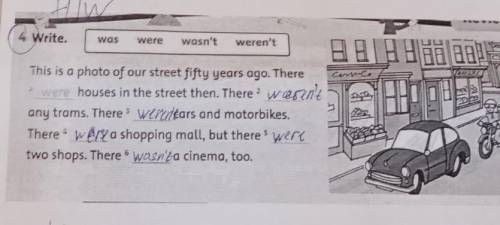 H/W
4 Write.
was were wasn't weren't
This is a photo of our street fifty years ago. There
1 were houses in the street then. There 2 wasen't
any trams. There 3 weren't cars and motorbikes.
There 4 were a shopping mall, but there 5 were
two shops. There 6 wasn't a cinema, too.